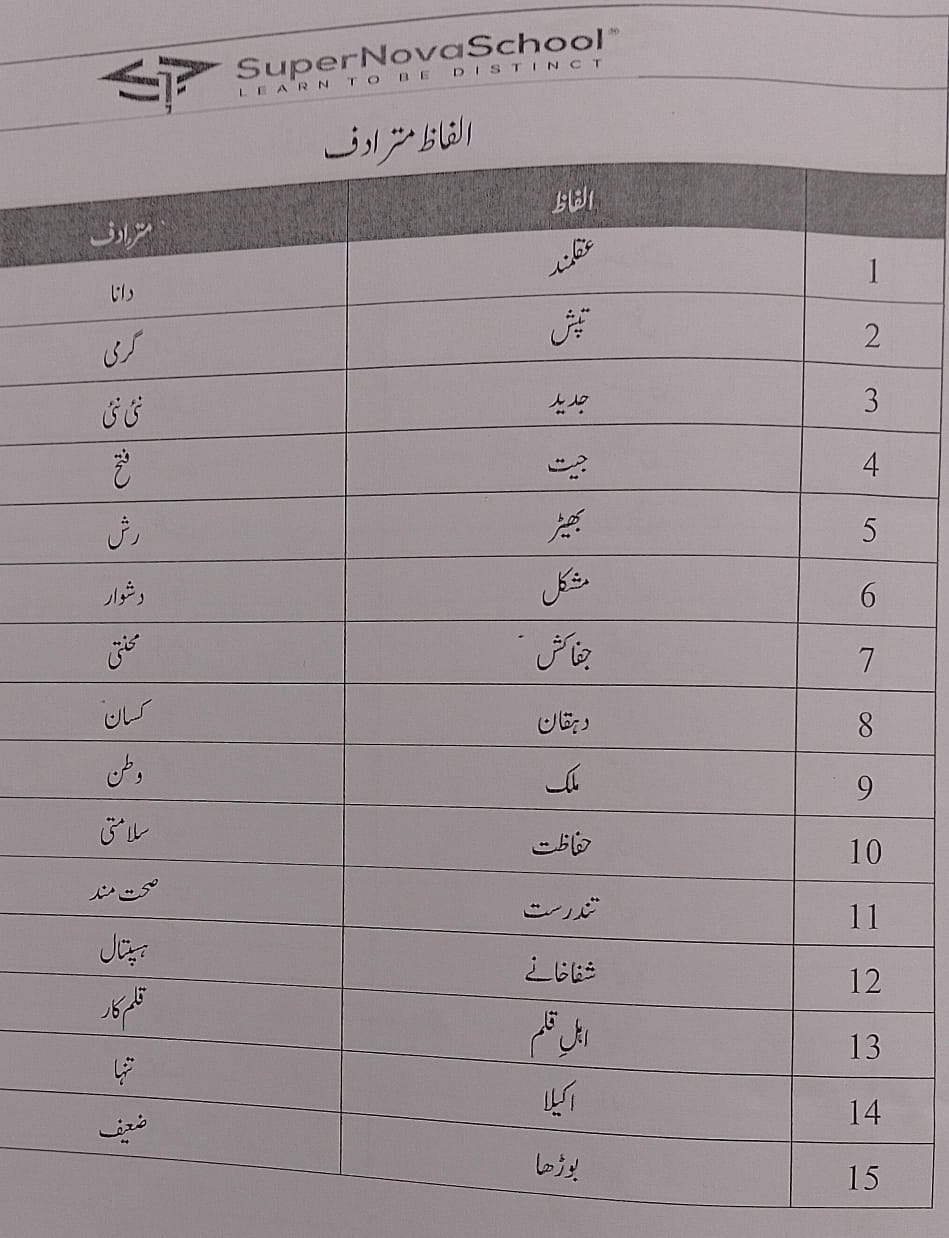 SuperNovaSchool®
LEARN TO BE DISTINCT
الفاظ مترادف
الفاظ مترادف
1 عقلمند دانا
2 تپش گرمی
3 جدید نئی نئی
4 جیت فتح
5 بھیڑ رش
6 مشکل دشوار
7 جفاکش محنتی
8 دہقان کسان
9 ملک وطن
10 حفاظت سلامتی
11 تندرست صحت مند
12 شفاخانے ہسپتال
13 اہلِ قلم قلم کار
14 اکیلا تنہا
15 بوڑھا ضعیف